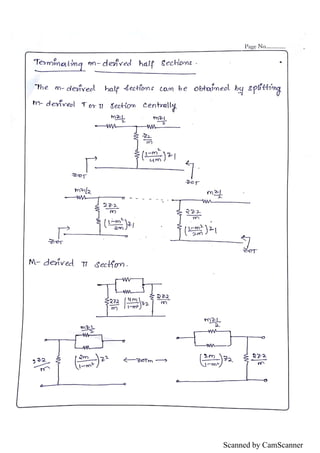 Page No.
Terminating m-derived half sections.
The m-derived half sections can be obtained by splitting
m-derived T or Π section centrally
mZ1/2 mZ1/2
Z2/m
(1-m²/4m)Z1
Z0T Z0T
mZ1/2 mZ1/2
2Z2/m 2Z2/m
(1-m²/2m)Z1 (1-m²/2m)Z1
Z0T Z0T
M-derived Π section.
2Z2/m (4m/1-m²)Z2 2Z2/m
mZ1/2 mZ1/2
2Z2/m (2m/1-m²)Z2 ← Z0πm → (2m/1-m²)Z2 2Z2/m
Scanned by CamScanner